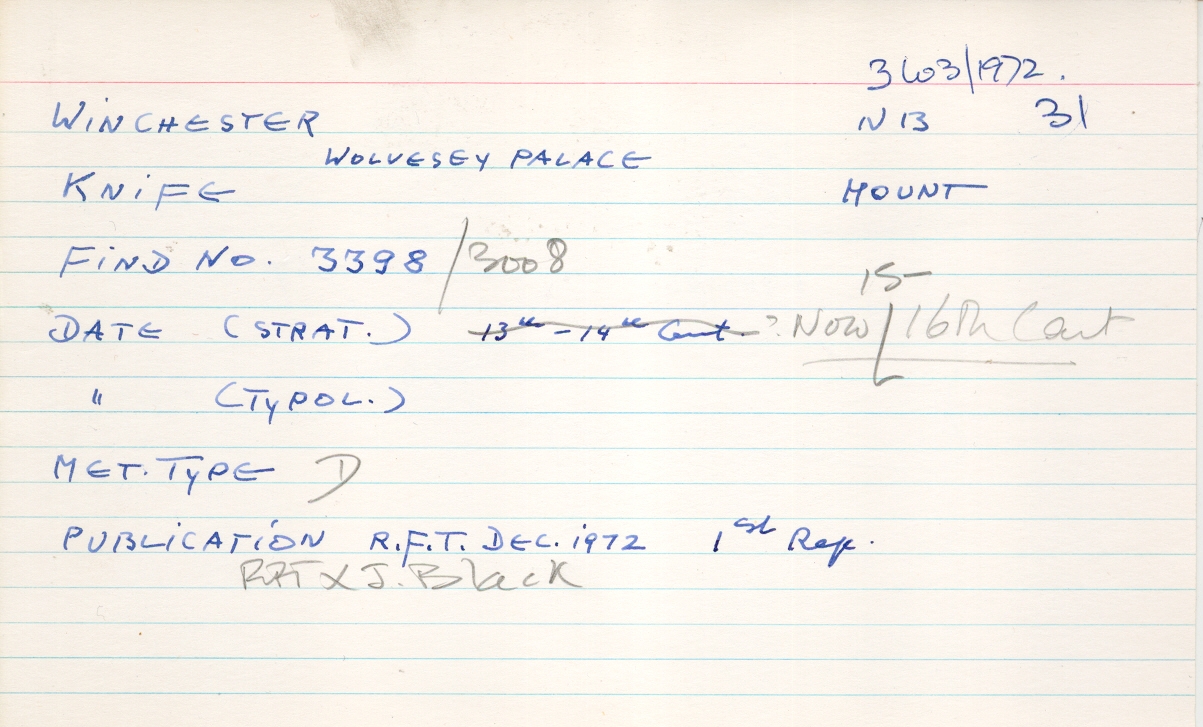 3603/1972.
WINCHESTER N 13 31
WOLVESEY PALACE
KNIFE MOUNT
FIND NO. 3398 / 3008
15-
DATE (STRAT.) 13th - 14th Cent. ? Now / 16th Cent
" (TYPOL.)
MET. TYPE D
PUBLICATION R.F.T. DEC. 1972 1st Rep.
RFT & J. Black